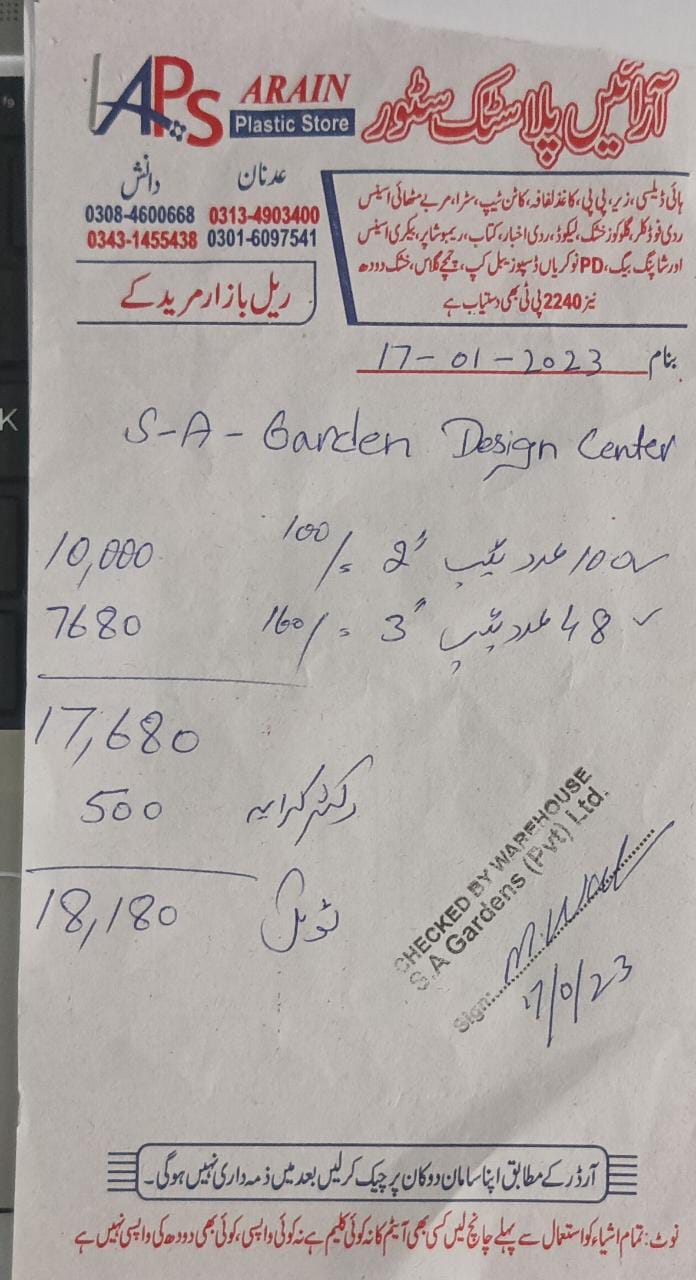 APS
ARAIN
Plastic Store
آرائیں پلاسٹک سٹور
دانش
عدنان
0308-4600668 0313-4903400
0343-1455438 0301-6097541
ریل بازار مریدکے
ہائی ڈیلسی، زیر، پی پی، کاغذ لفافہ، کاٹن ٹیپ، سٹرا، مربے مٹھائی اسینس
ردی فوڈ کلر، گلوکوز خشک، لیکوڈ، ردی اخبار، کتاب، ریمبو شاپر، بیکری اسینس
اور شاپنگ بیگ، PD ٹوکریاں ڈسپوزیبل کپ، چمچے گلاس، خشک دودھ
نیز 2240 پی ٹی بھی دستیاب ہے
بنام 17-01-2023
S-A- Garden Design Center
100 عدد ٹیپ 2" 100/= 10,000
48 عدد ٹیپ 3" 160/= 7680
17,680
رکشہ کرایہ 500
ٹوٹل 18,180
CHECKED BY WAREHOUSE
S.A Gardens (Pvt) Ltd.
Sign:
آرڈر کے مطابق اپنا سامان دوکان پر چیک کر لیں بعد میں ذمہ داری نہیں ہوگی۔
نوٹ: تمام اشیاء کو استعمال سے پہلے جانچ لیں کسی بھی آئیٹم کا نہ کوئی کلیم ہے نہ کوئی واپسی، کوئی بھی دودھ کی واپسی نہیں ہے